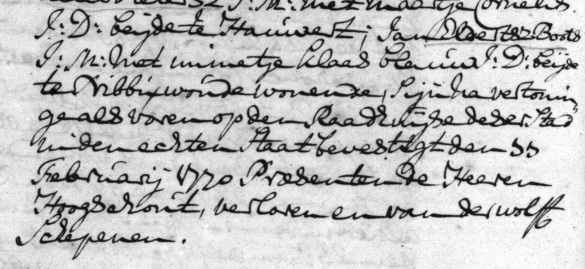 J: M: met maartje Cornelis
J: D: beijde te Hauwert; Jan Elbertsz Boots
J: M: met nimetje klaas blauw J: D: beijde
te Nibbixwoude wonende, Sijn na vertonin
ge als voren op den Raadhuijse deser Stad
in den echten Staat bevestigt den
Februarij 1770 Præsenten de Heeren
Hoogschout, verloren en van der wolff
Schepenen.